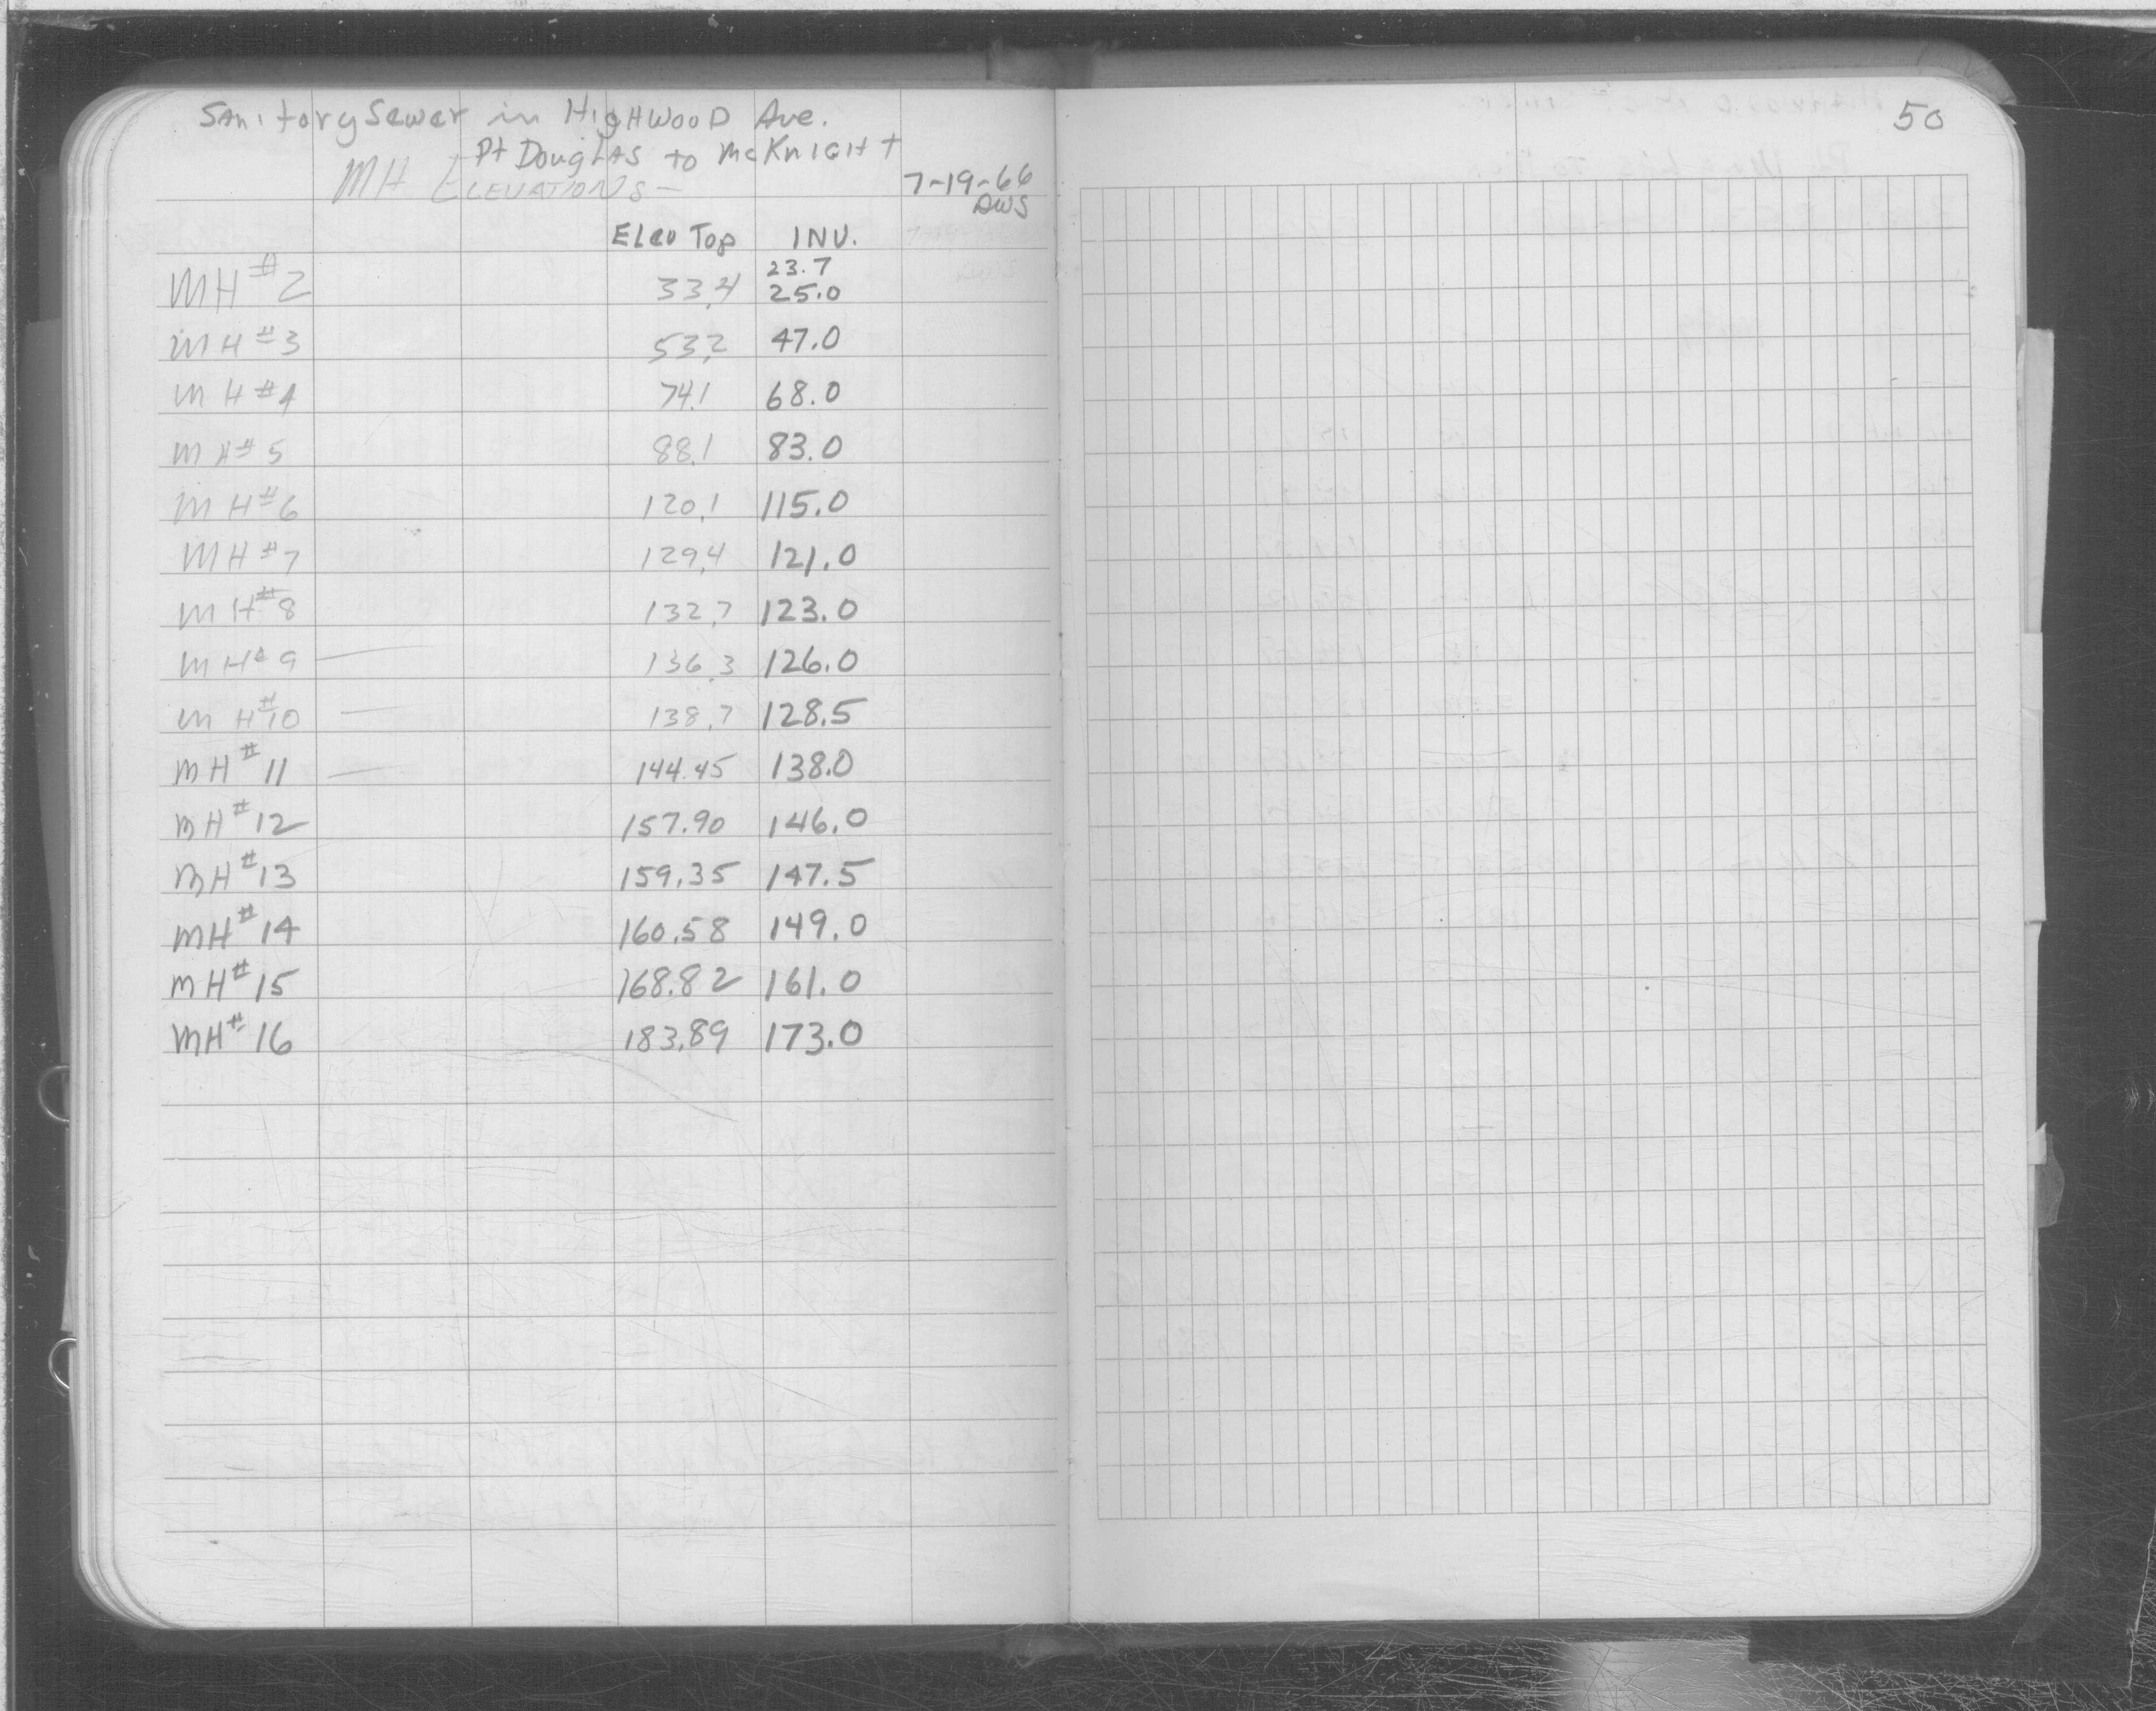 Sanitary Sewer in HigHWOOD Ave.
Pt DougLAS to McKnIGHt
MH ELEVATIONS —
7-19-66
DWS
50
Elev Top INV.
23.7
MH #2 33.4 25.0
MH #3 53.2 47.0
MH #4 74.1 68.0
MH #5 88.1 83.0
MH #6 120.1 115.0
MH #7 129.4 121.0
MH #8 132.7 123.0
MH #9 — 136.3 126.0
MH #10 — 138.7 128.5
MH #11 — 144.45 138.0
MH #12 157.90 146.0
MH #13 159.35 147.5
MH #14 160.58 149.0
MH #15 168.82 161.0
MH #16 183.89 173.0